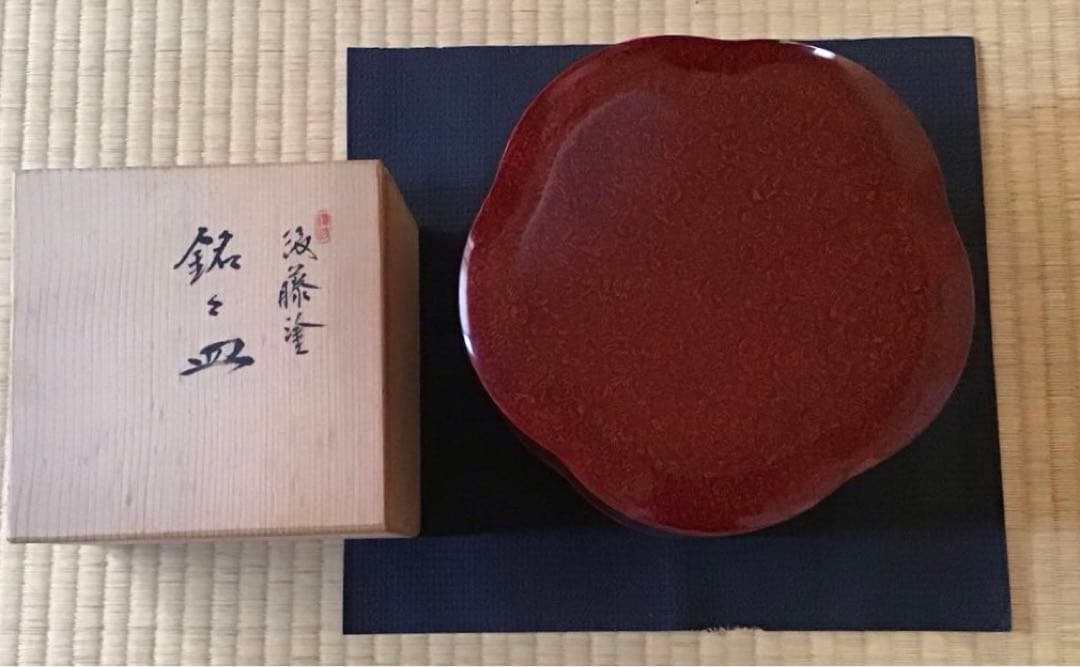 後藤塗
銘々皿